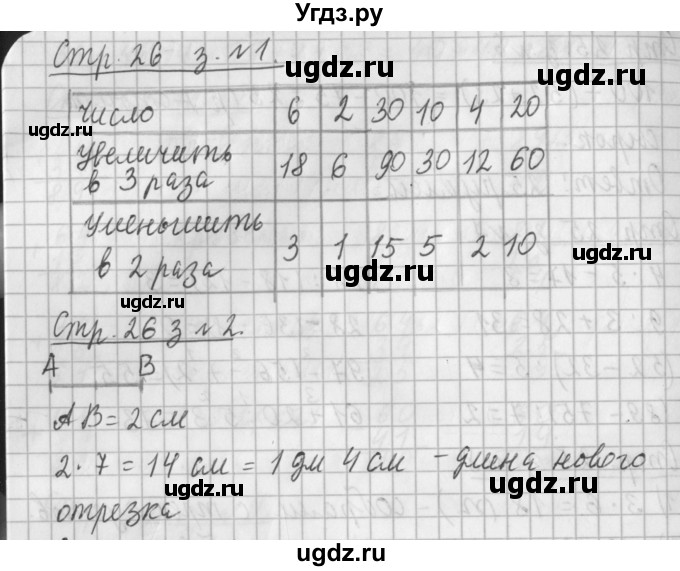 Угдз.ру
Стр. 26 з. №1.
Число 6 2 30 10 4 20
Увеличить
в 3 раза 18 6 90 30 12 60
Уменьшить
в 2 раза 3 1 15 5 2 10
Стр. 26 з №2.
А В
АВ = 2 см
2 · 7 = 14 см = 1 дм 4 см - длина нового
отрезка
ugdz.ru
ugdz.ru
ugdz.ru
ugdz.ru
ugdz.ru
ugdz.ru
ugdz.ru
ugdz.ru
ugdz.ru
ugdz.ru
ugdz.ru
ugdz.ru